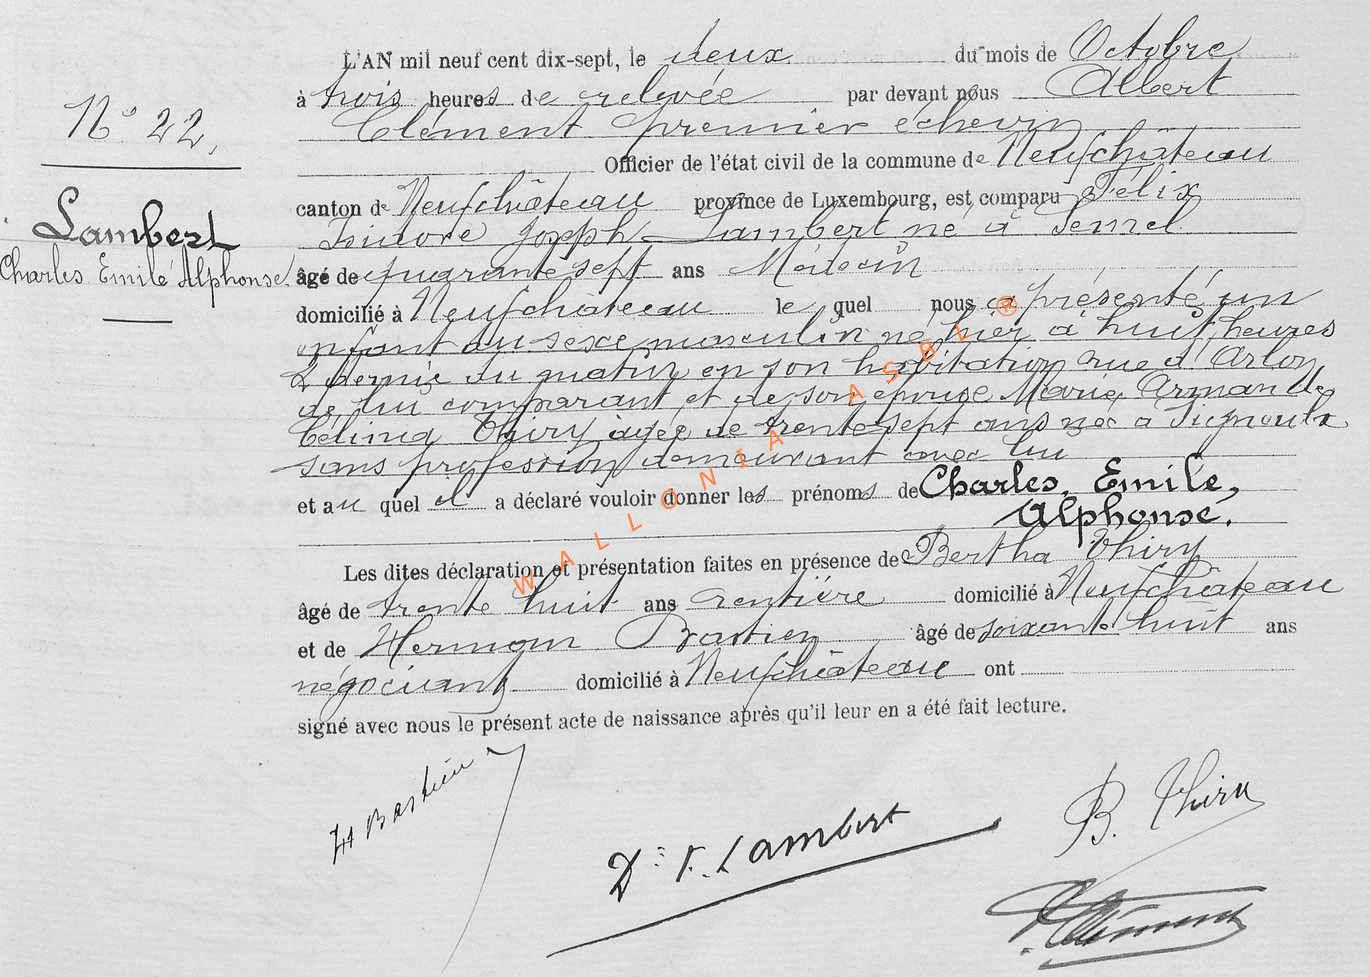 L'AN mil neuf cent dix-sept, le deux du mois de Octobre
N° 22,
à trois heures de relevée par devant nous Albert
Clément premier échevin
Officier de l'état civil de la commune de Neufchâteau
canton de Neufchâteau province de Luxembourg, est comparu Félix
Lambert
Isidore Joseph Lambert né à
Charles Emile Alphonse.
âgé de quarante sept ans Médecin
domicilié à Neufchâteau le quel nous a présenté un
enfant du sexe masculin né hier à huit heures
& demie du matin en son habitation rue d'Arlon
de lui comparant et de son épouse Marie Armande
Célina Thiry âgée de trente sept ans née à
sans profession demeurant avec lui
et au quel il a déclaré vouloir donner les prénoms de Charles, Emile,
Alphonse.
Les dites déclaration et présentation faites en présence de Bertha Thiry
âgé de trente huit ans rentière domicilié à Neufchâteau
et de Herman Bastien âgé de soixante huit ans
négociant domicilié à Neufchâteau ont
signé avec nous le présent acte de naissance après qu'il leur en a été fait lecture.
H Bastien
Dr F. Lambert
B. Thiry
Clément
WALLONIA ASBL ®